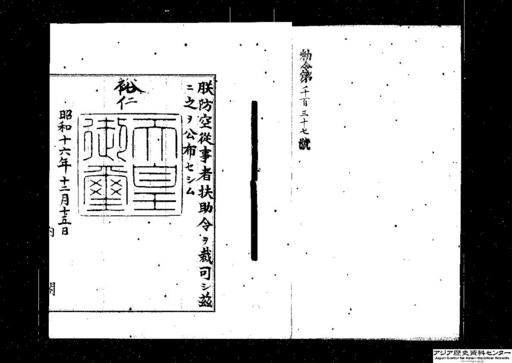 勅令第千百三十七號
朕防空從事者扶助令ヲ裁可シ茲
ニ之ヲ公布セシム
裕仁
天皇
御璽
昭和十六年十二月十五日
内閣
アジア歴史資料センター
Japan Center for Asian Historical Records